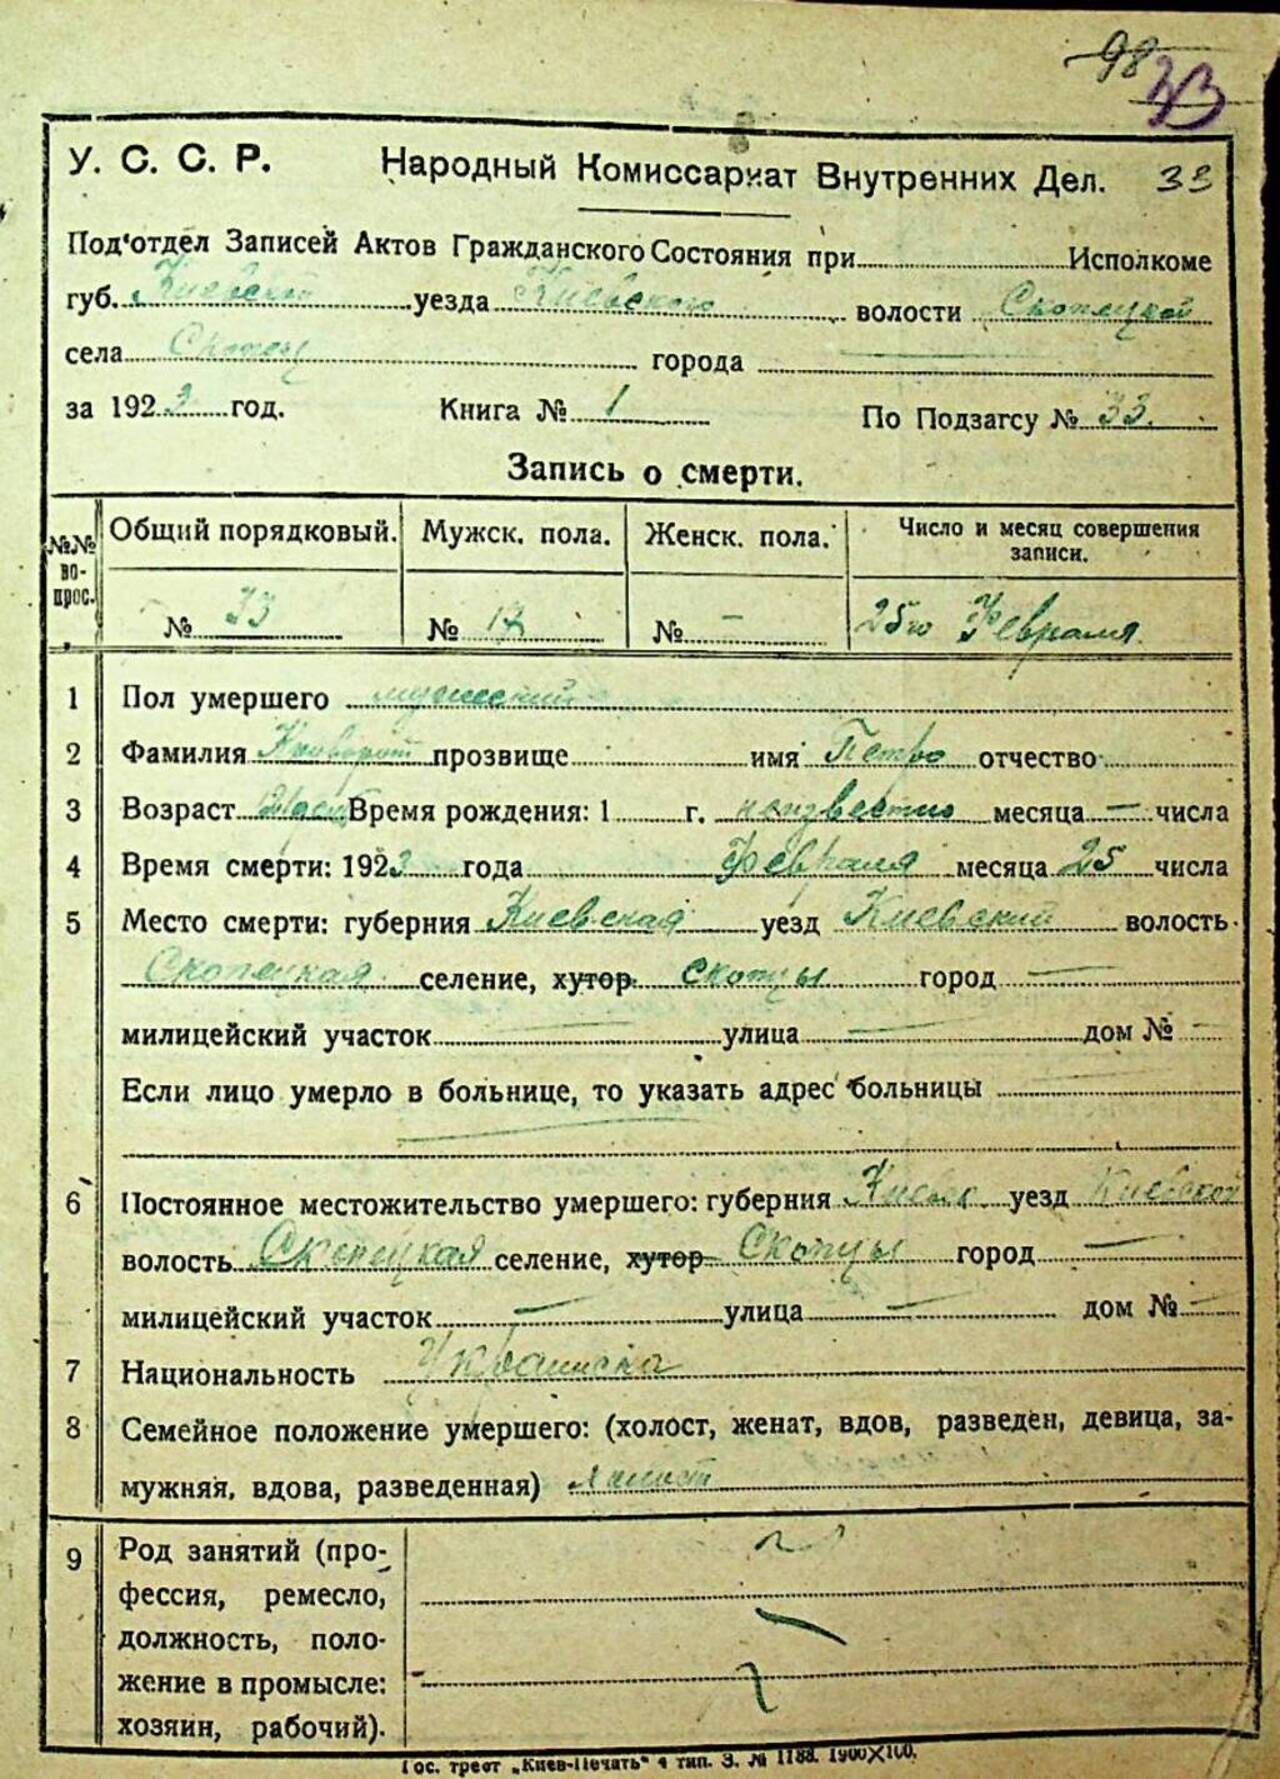 98 33
У. С. С. Р. Народный Комиссариат Внутренних Дел. 33
Под'отдел Записей Актов Гражданского Состояния при Исполкоме
губ. Киевской уезда Киевского волости Скопецкой
села Скопцы города —
за 1923 год. Книга № 1 По Подзагсу № 33.
Запись о смерти.
№№ во-прос. Общий порядковый. Мужск. пола. Женск. пола. Число и месяц совершения
записи.
№ 33 № № — 25го Февраля.
1 Пол умершего мужеский
2 Фамилия прозвище имя Петро отчество
3 Возраст Время рождения: 1 г. неизвестно месяца — числа
4 Время смерти: 1923 года Февраля месяца 25 числа
5 Место смерти: губерния Киевская уезд Киевский волость
Скопецкая селение, хутор Скопцы город —
милицейский участок — улица — дом № —
Если лицо умерло в больнице, то указать адрес больницы —
—
6 Постоянное местожительство умершего: губерния Киевск уезд Киевской
волость Скопецкая селение, хутор Скопцы город —
милицейский участок — улица — дом № —
7 Национальность Украинска
8 Семейное положение умершего: (холост, женат, вдов, разведен, девица, за-
мужняя, вдова, разведенная) холост
9 Род занятий (про-
фессия, ремесло,
должность, поло-
жение в промысле:
хозяин, рабочий).
Гос. трест „Киев-Печать" 4 тип. З. № 1188. 1900×100.